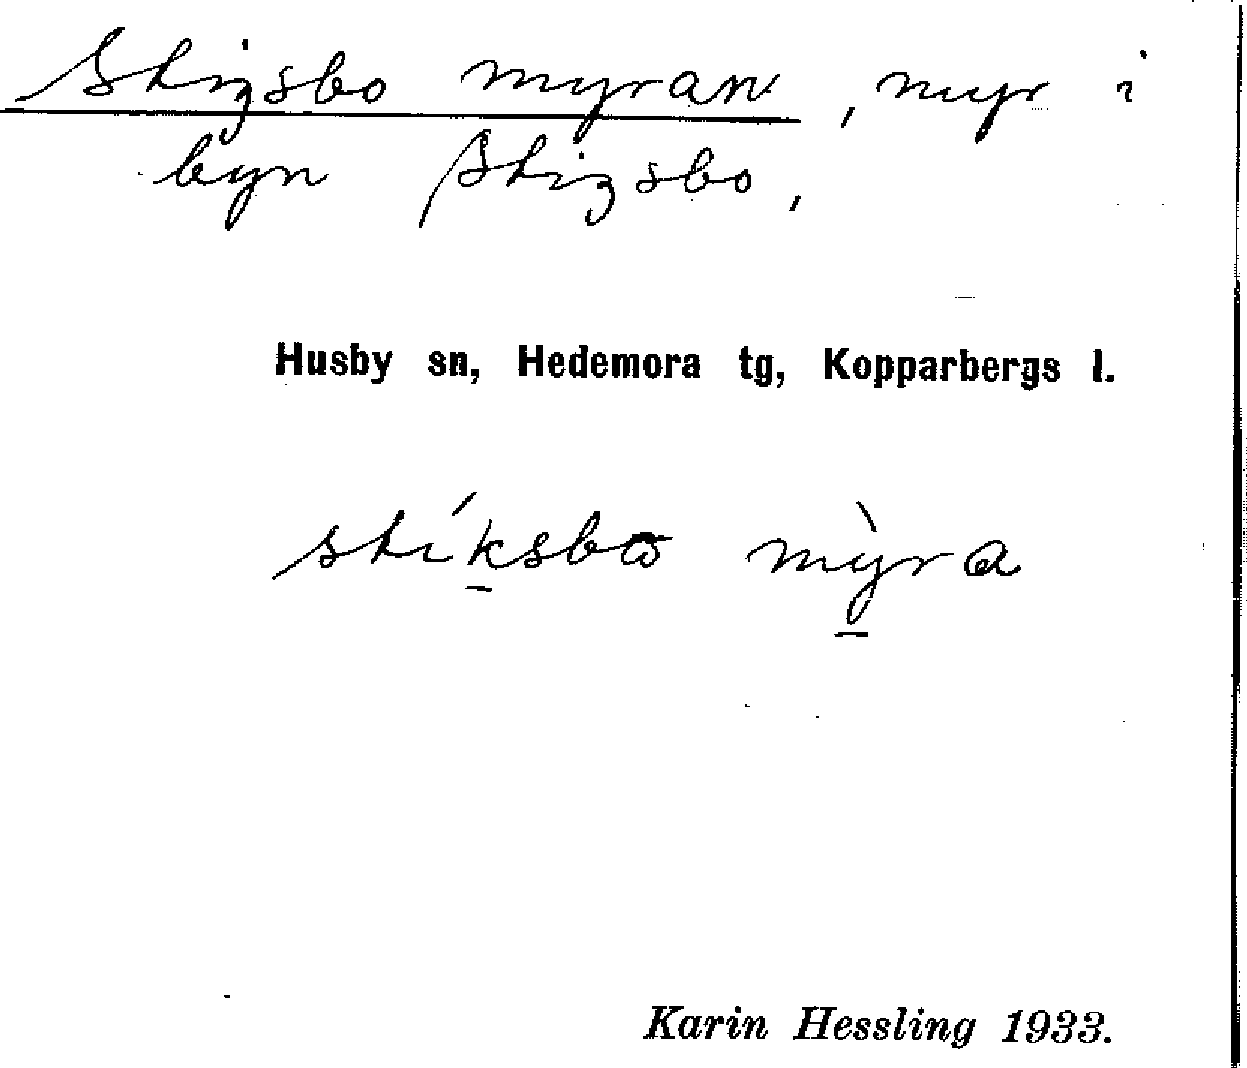 Stigsbo myran, myr i
byn Stigsbo,
Husby sn, Hedemora tg, Kopparbergs l.
stíksbω mỳra
Karin Hessling 1933.